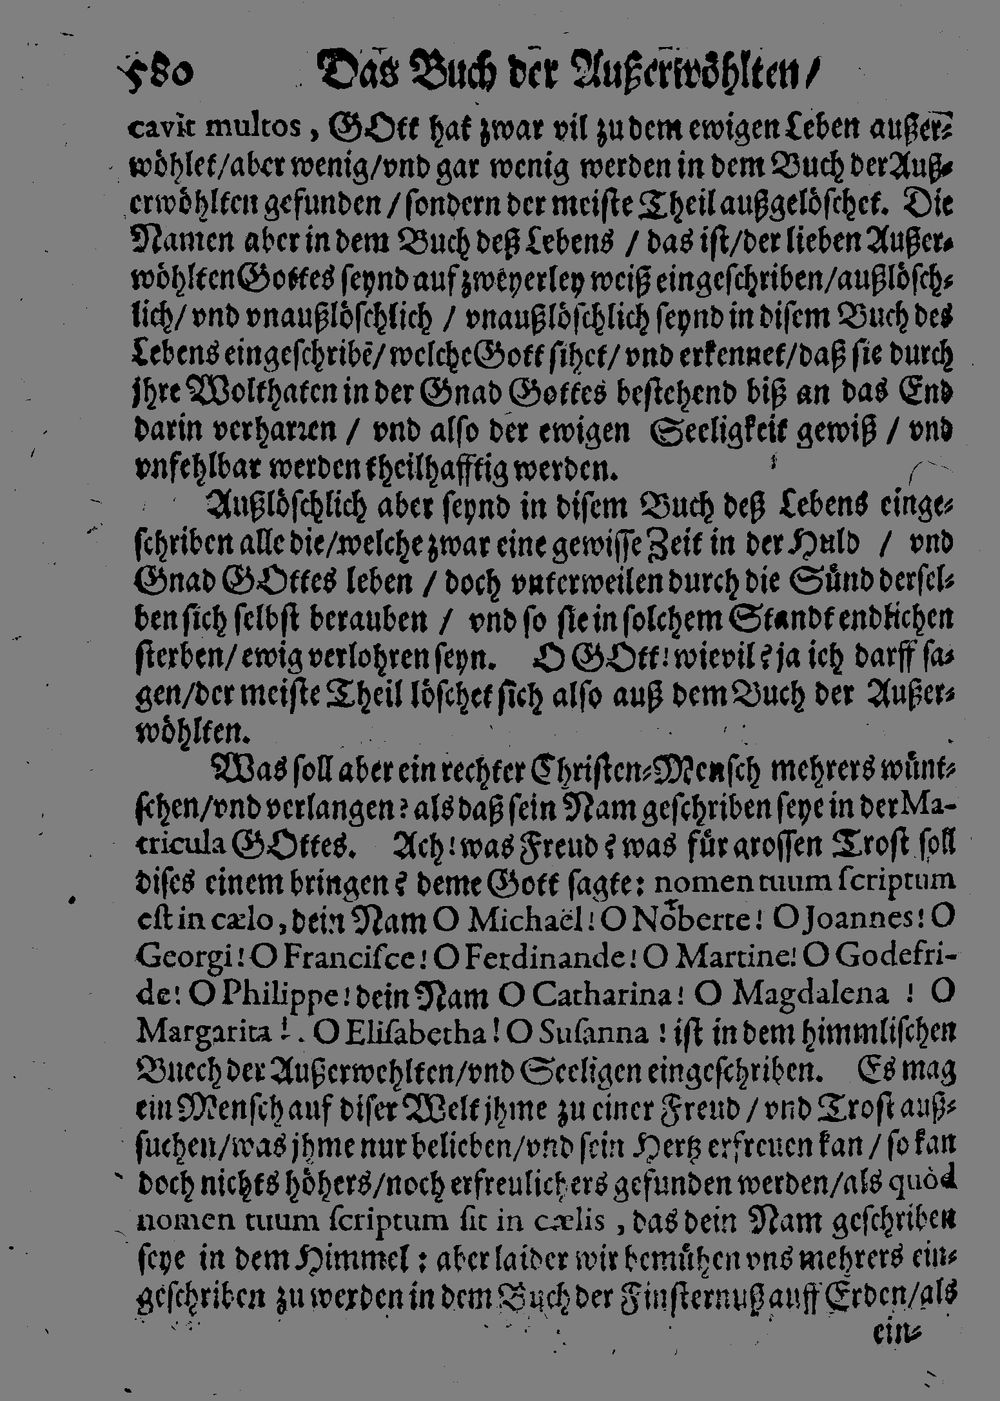 580 Das Buch der Außerwöhlten/
cavit multos, GOtt hat zwar vil zu dem ewigen Leben außer-
wöhlet/aber wenig/vnd gar wenig werden in dem Buch der Auß-
erwöhlten gefunden/sondern der meiste Theil außgelöschet. Die
Namen aber in dem Buch deß Lebens / das ist/der lieben Außer-
wöhlten Gottes seynd auf zweyerley weiß eingeschriben/außlösch-
lich/ vnd vnaußlöschlich / vnaußlöschlich seynd in disem Buch des
Lebens eingeschribē/welche Gott sihet/ vnd erkennet/daß sie durch
jhre Wolthaten in der Gnad Gottes bestehend biß an das End
darin verharren / vnd also der ewigen Seeligkeit gewiß / vnd
vnfehlbar werden theilhafftig werden.
Außlöschlich aber seynd in disem Buch deß Lebens einge-
schriben alle die/welche zwar eine gewisse Zeit in der Huld / vnd
Gnad GOttes leben / doch vnterweilen durch die Sünd dersel-
ben sich selbst berauben / vnd so sie in solchem Standt endlichen
sterben/ ewig verlohren seyn. O GOtt! wievil? ja ich darff sa-
gen/der meiste Theil löschet sich also auß dem Buch der Außer-
wöhlten.
Was soll aber ein rechter Christen-Mensch mehrers wünt-
schen/vnd verlangen? als daß sein Nam geschriben seye in der Ma-
tricula GOttes. Ach! was Freud? was für grossen Trost soll
dises einem bringen? deme Gott sagte: nomen tuum scriptum
est in cælo, dein Nam O Michaël! O Nōberte! O Joannes! O
Georgi! O Francisce! O Ferdinande! O Martine! O Godefri-
de! O Philippe! dein Nam O Catharina! O Magdalena ! O
Margarita ! . O Elisabetha! O Susanna ! ist in dem himmlischen
Buech der Außerwehlten/vnd Seeligen eingeschriben. Es mag
ein Mensch auf diser Welt jhme zu einer Freud / vnd Trost auß-
suchen/was jhme nur belieben/vnd sein Hertz erfreuen kan / so kan
doch nichts höhers/noch erfreulichers gefunden werden/als quòd
nomen tuum scriptum sit in cælis , das dein Nam geschriben
seye in dem Himmel : aber laider wir bemühen vns mehrers ein-
geschriben zu werden in dem Buch der Finsternuß auff Erden/als
ein-